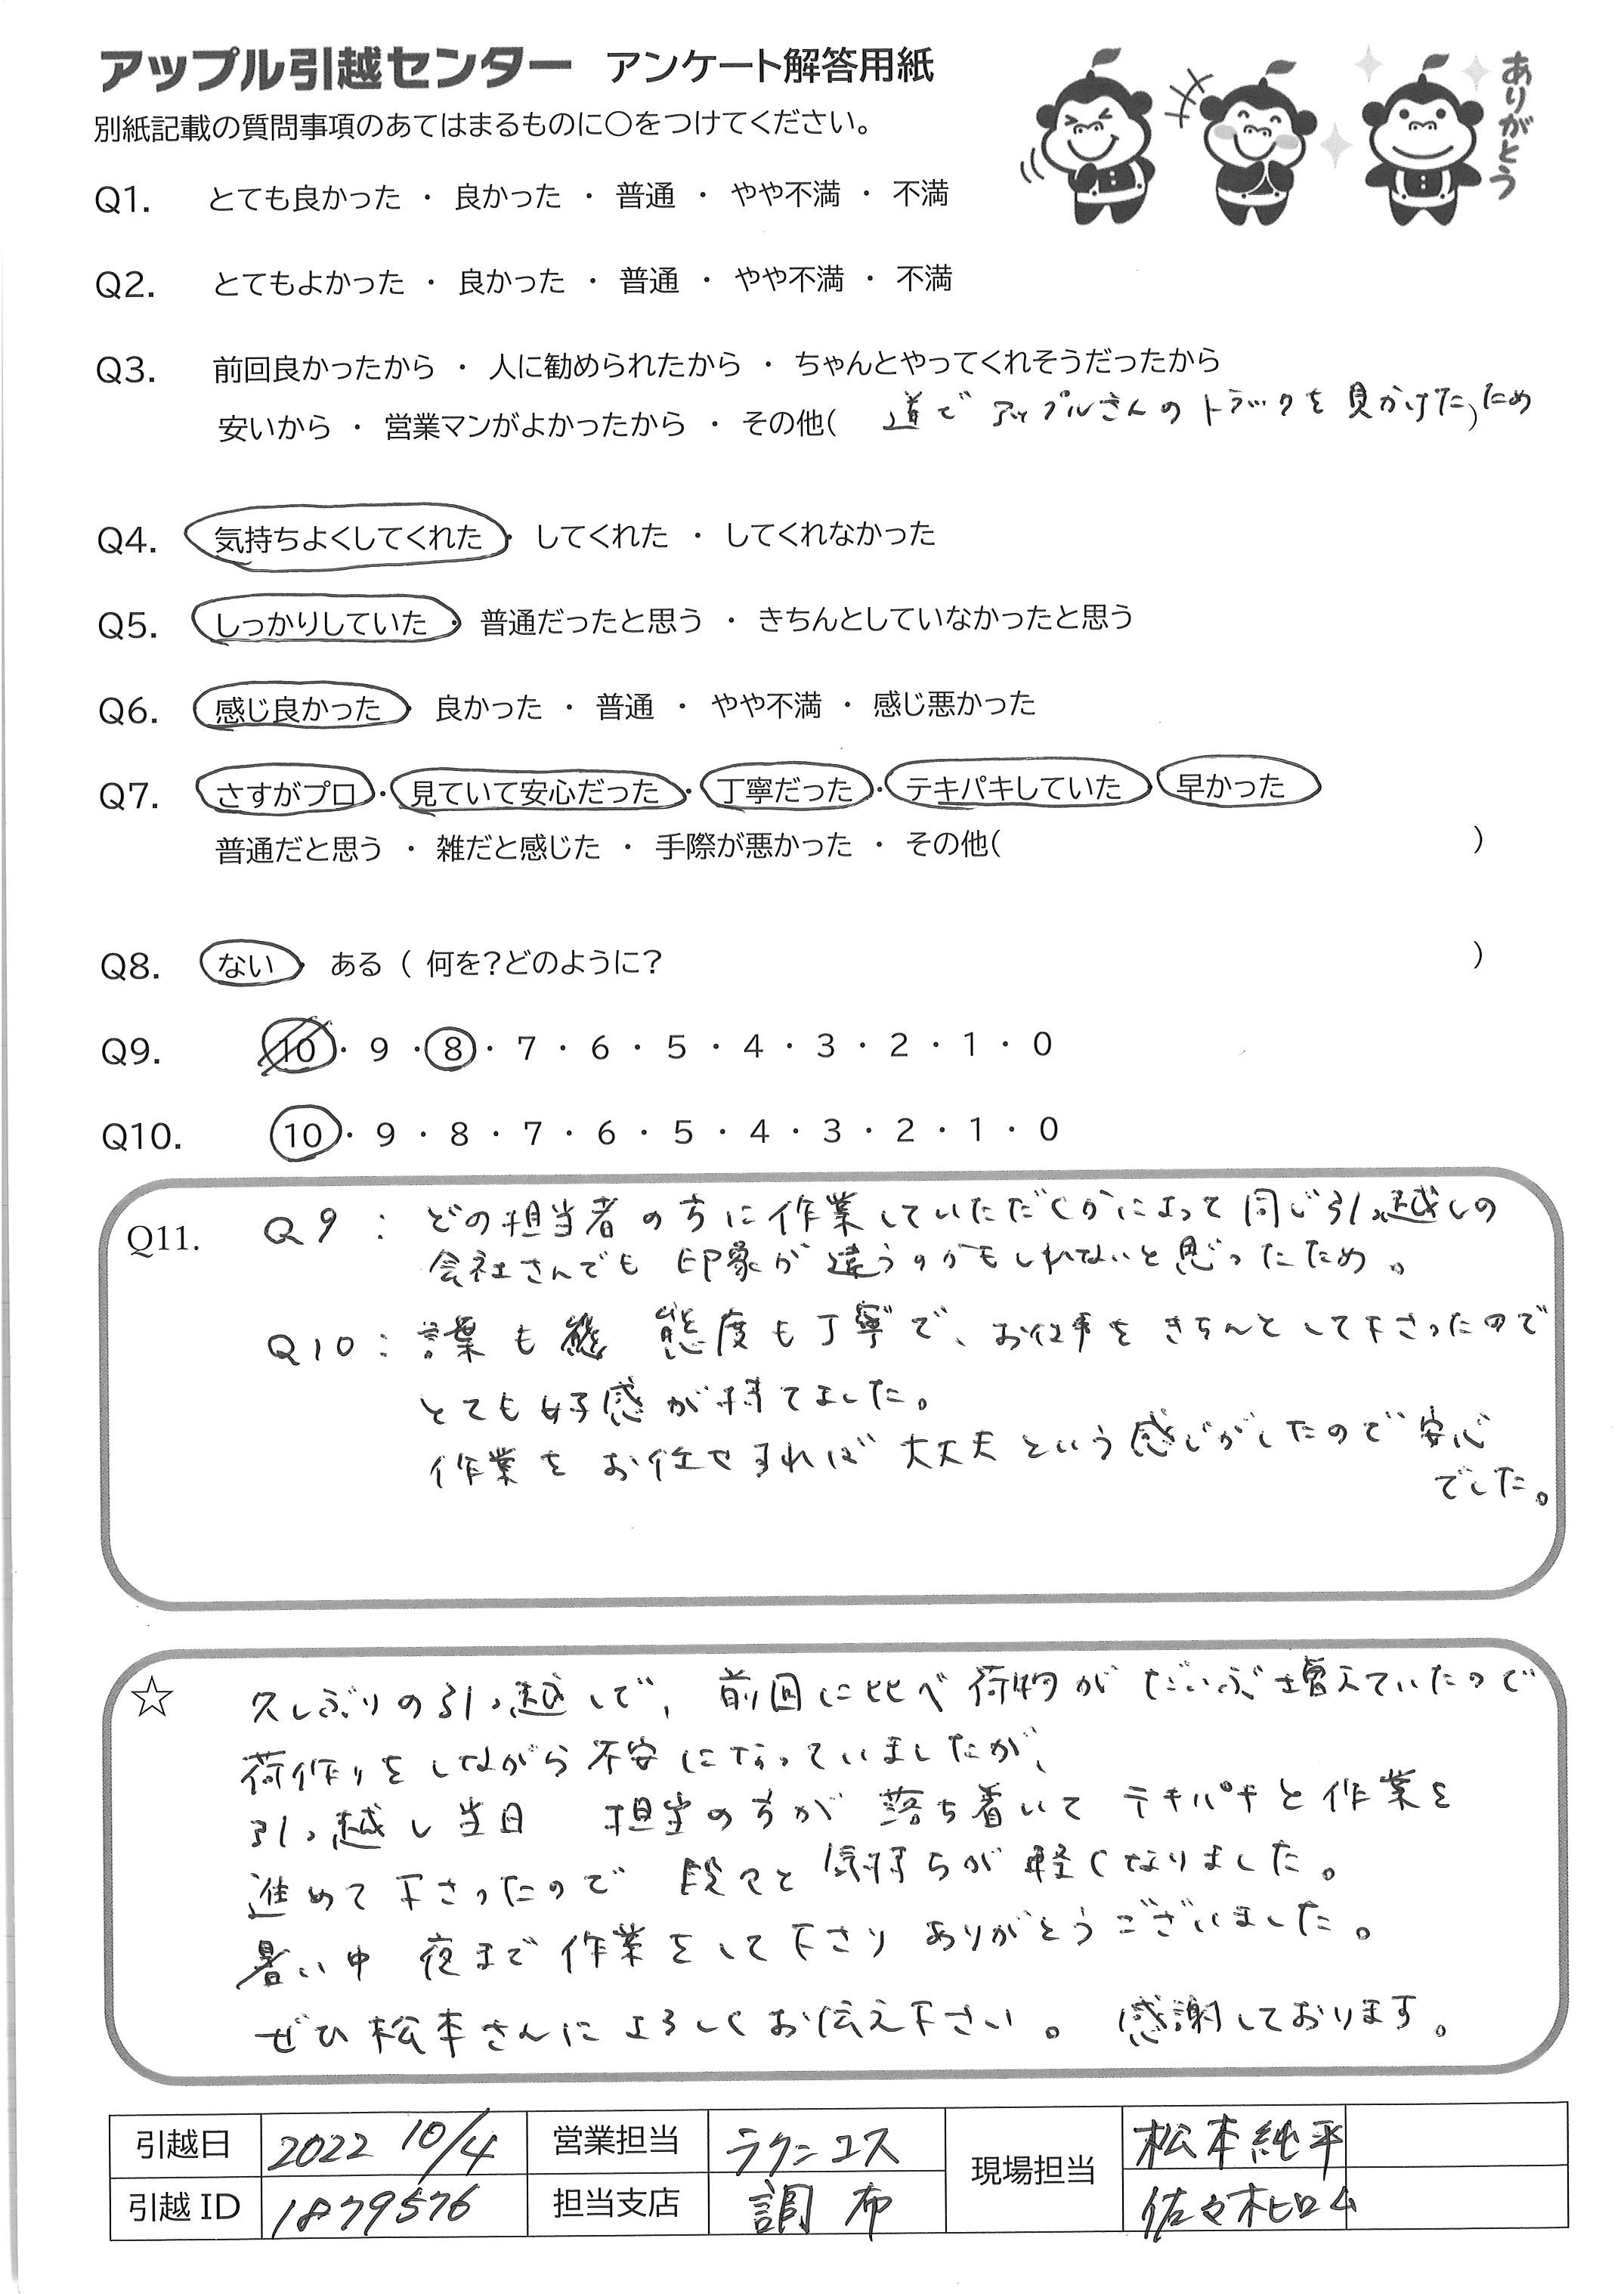 アップル引越センター アンケート解答用紙
ありがとう
別紙記載の質問事項のあてはまるものに○をつけてください。
Q1. とても良かった ・ 良かった ・ 普通 ・ やや不満 ・ 不満
Q2. とてもよかった ・ 良かった ・ 普通 ・ やや不満 ・ 不満
Q3. 前回良かったから ・ 人に勧められたから ・ ちゃんとやってくれそうだったから
安いから ・ 営業マンがよかったから ・ その他( 道でアップルさんのトラックを見かけた)ため
Q4. 気持ちよくしてくれた ・ してくれた ・ してくれなかった
Q5. しっかりしていた ・ 普通だったと思う ・ きちんとしていなかったと思う
Q6. 感じ良かった ・ 良かった ・ 普通 ・ やや不満 ・ 感じ悪かった
Q7. さすがプロ ・ 見ていて安心だった ・ 丁寧だった ・ テキパキしていた ・ 早かった
普通だと思う ・ 雑だと感じた ・ 手際が悪かった ・ その他( )
Q8. ない ・ ある ( 何を?どのように? )
Q9. 10 ・ 9 ・ 8 ・ 7 ・ 6 ・ 5 ・ 4 ・ 3 ・ 2 ・ 1 ・ 0
Q10. 10 ・ 9 ・ 8 ・ 7 ・ 6 ・ 5 ・ 4 ・ 3 ・ 2 ・ 1 ・ 0
Q11. Q9 : どの担当者の方に作業していただくかによって同じ引っ越しの
会社さんでも印象が違うのかもしれないと思ったため。
Q10 : 言葉も 態度も丁寧で、お仕事をきちんとして下さったので
とても好感が持てました。
作業をお任せすれば大丈夫という感じがしたので安心
でした。
☆ 久しぶりの引っ越しで、前回に比べ荷物がだいぶ増えていたので
荷作りをしながら不安になっていましたが、
引っ越し当日 担当の方が落ち着いてテキパキと作業を
進めて下さったので段々と気持ちが軽くなりました。
暑い中 夜まで作業をして下さりありがとうございました。
ぜひ松本さんによろしくお伝え下さい。 感謝しております。
引越日 2022 10/4 営業担当 ラクニコス 現場担当 松本純平
引越ID 1879576 担当支店 調布 佐々木ヒロム